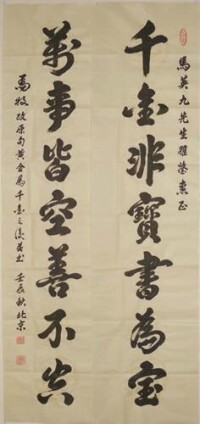 馬英九先生雅鑒惠正
千金非寶書為寶
萬事皆空善不空
馬牧改原句黃金為千金之後並書 壬辰秋北京